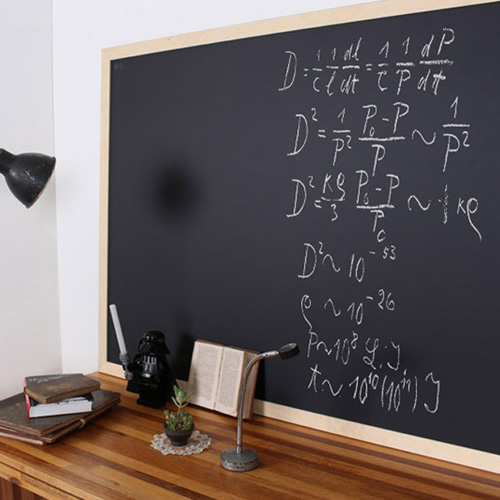 D = 1/c 1/l dl/dt = 1/c 1/P dP/dt
D² = 1/P² P₀-P/P ~ 1/P²
D² = κρ/3 P₀-P/P₀ ~ 1/3 κρ
D² ~ 10⁻⁵³
ρ ~ 10⁻²⁶
P ~ 10⁸ L. J
t ~ 10¹⁰(10¹¹) J